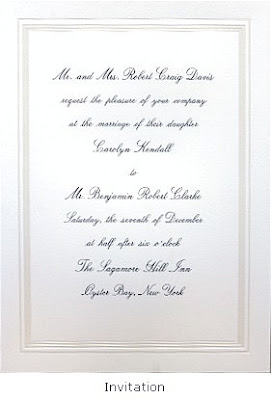 Mr. and Mrs. Robert Craig Davis
request the pleasure of your company
at the marriage of their daughter
Carolyn Kendall
to
Mr. Benjamin Robert Clarke
Saturday, the seventh of December
at half after six o'clock
The Sagamore Hill Inn
Oyster Bay, New York
Invitation